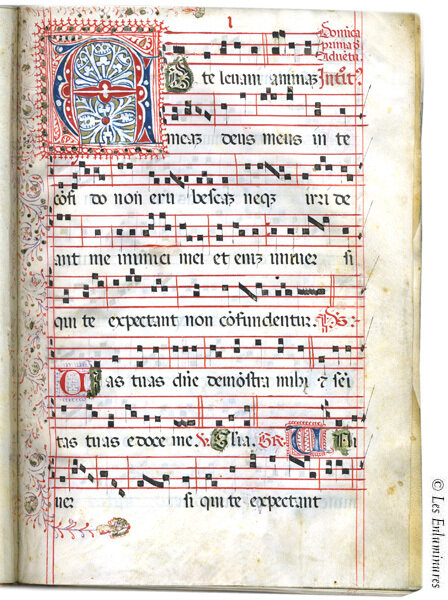 I
Domica
prima d
Advetu
Ad te levavi animaz Introit
meaz deus meus in te
cōfi do non eru bescaz neqz irri de
ant me inimici mei et eniz univer si
qui te expectant non cōfundentur. Ps
Vias tuas dn̄e demōstra mihi et semi
tas tuas edoce me Glīa. GR. Uni
ver si qui te expectant
© Les Enluminures